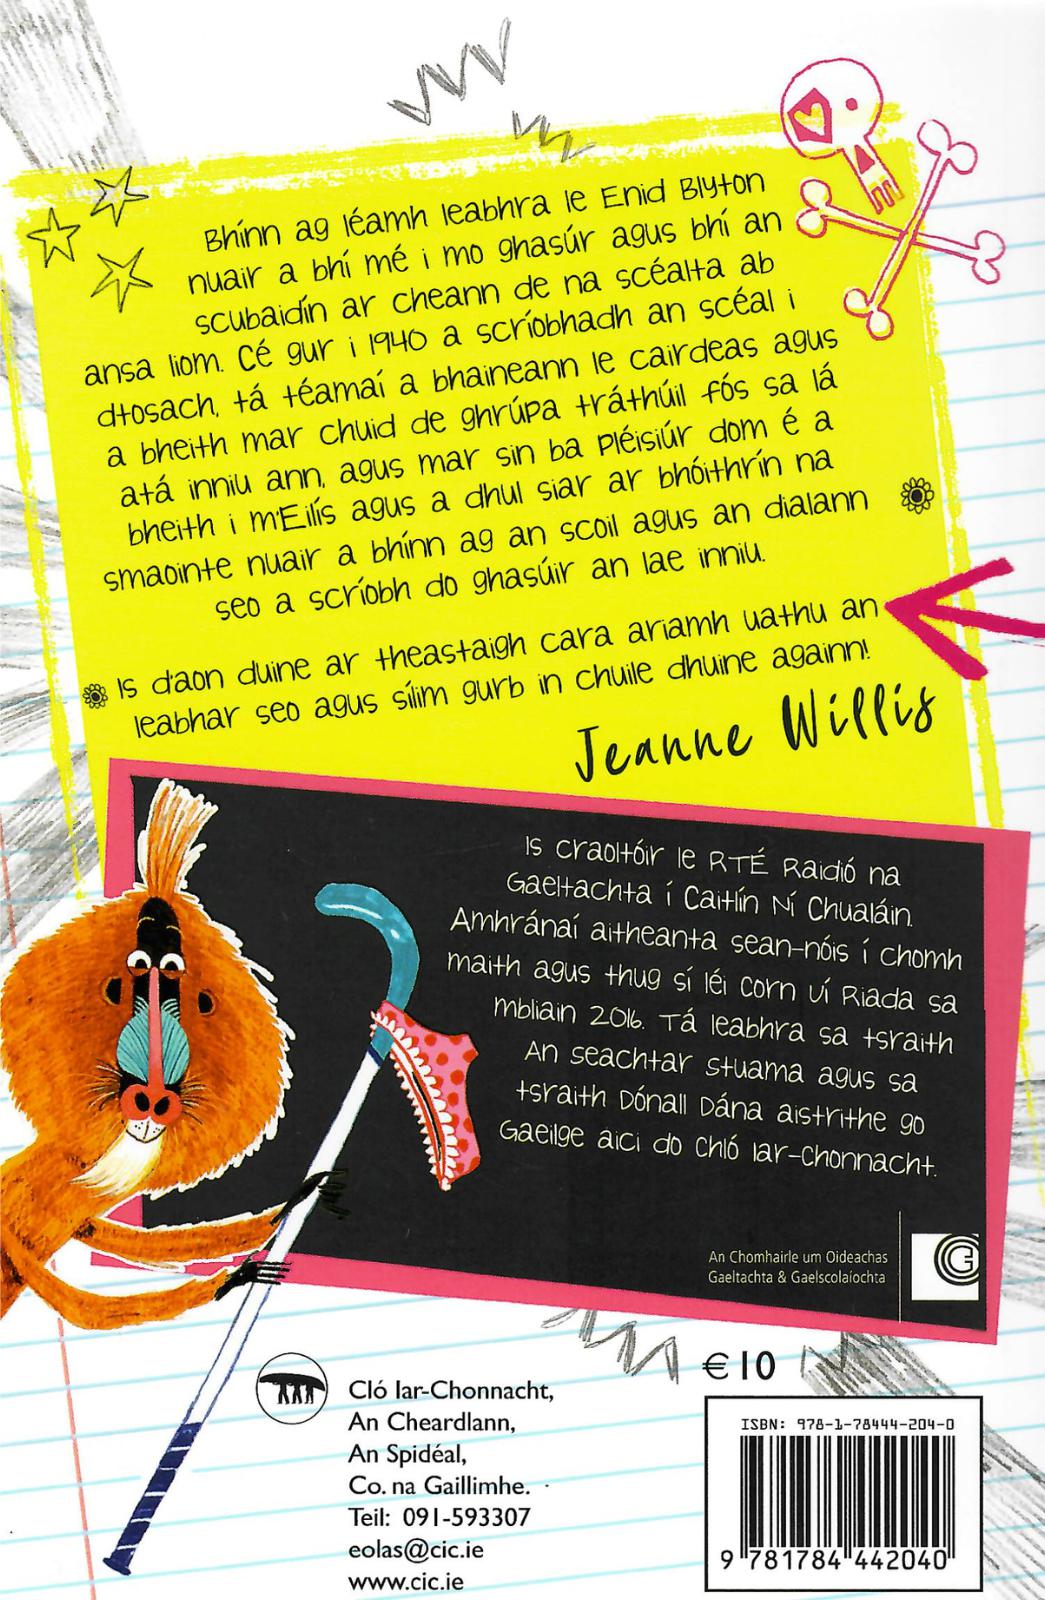 Bhínn ag léamh leabhra le Enid Blyton
nuair a bhí mé i mo ghasúr agus bhí an
scubaidín ar cheann de na scéalta ab
ansa liom. Cé gur i 1940 a scríobhadh an scéal i
dtosach, tá téamaí a bhaineann le cairdeas agus
a bheith mar chuid de ghrúpa tráthúil fós sa lá
atá inniu ann, agus mar sin ba pléisiúr dom é a
bheith i m'Eilís agus a dhul siar ar bhóithrín na
smaointe nuair a bhínn ag an scoil agus an dialann
seo a scríobh do ghasúir an lae inniu.
Is d'aon duine ar theastaigh cara ariamh uathu an
leabhar seo agus sílim gurb in chuile dhuine againn!
Jeanne Willis
Is craoltóir le RTÉ Raidió na
Gaeltachta í Caitlín Ní Chualáin.
Amhránaí aitheanta sean-nóis í chomh
maith agus thug sí léi Corn Uí Riada sa
mbliain 2016. Tá leabhra sa tsraith
An Seachtar Stuama agus sa
tsraith Dónall Dána aistrithe go
Gaeilge aici do Chló Iar-Chonnacht.
An Chomhairle um Oideachas
Gaeltachta & Gaelscolaíochta
€10
Cló Iar-Chonnacht,
An Cheardlann,
An Spidéal,
Co. na Gaillimhe.
Teil: 091-593307
eolas@cic.ie
www.cic.ie
ISBN: 978-1-78444-204-0
9 781784 442040